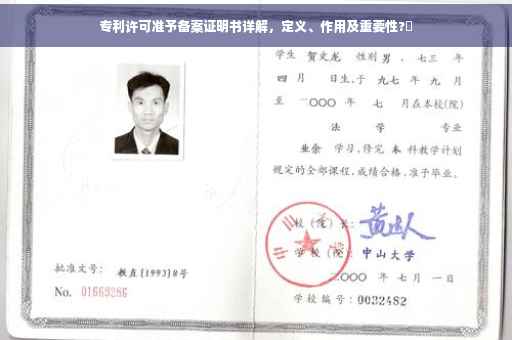 专利许可准予备案证明书详解，定义、作用及重要性?
学生 贺文龙 性别 男 ，七三 年
四 月 日生，于 九七 年 九 月
至 二〇〇〇 年 七 月在本校(院)
法 学 专业
业余 学习，修完 本 科教学计划
规定的全部课程，成绩合格，准予毕业。
校（院）长：
学校（院）： 中山大学
二〇〇〇 年 七 月 一 日
学校编号：0032482
批准文号： 教直[1993]8号
No. 01669286